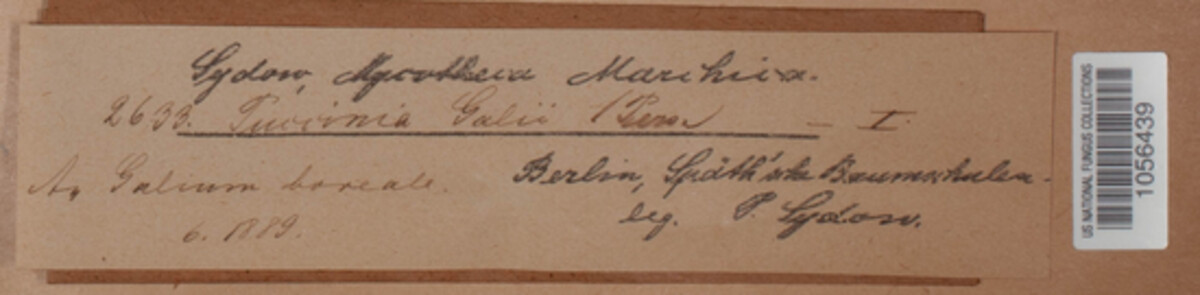 Sydow, Mycotheca Marchica.
2633. Puccinia Galii (Pers. — I.
An Galium boreale.
6. 1889.
Berlin, Späth'sche Baumschulen.
leg. P. Sydow.
US NATIONAL FUNGUS COLLECTIONS
1056439